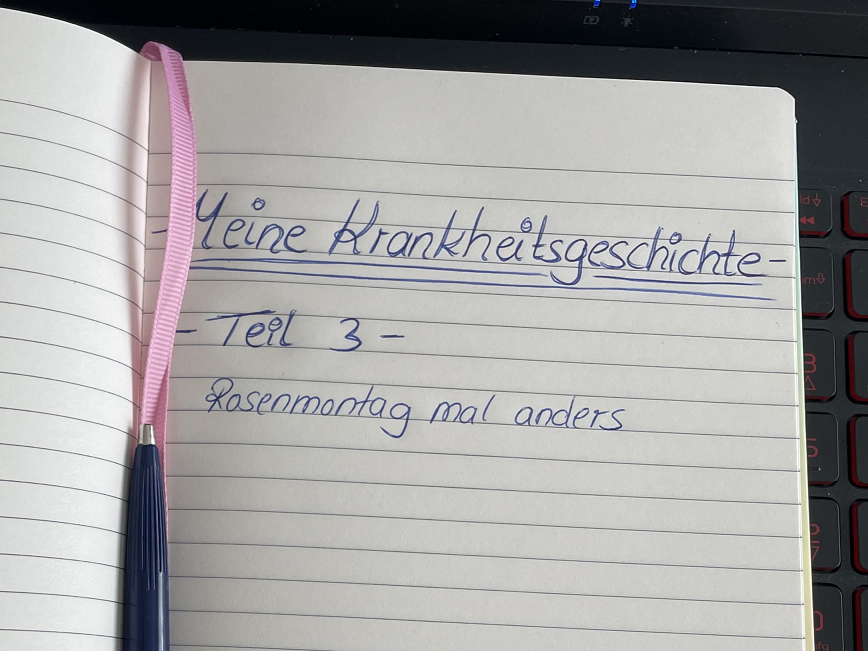 - Meine Krankheitsgeschichte -
- Teil 3 -
Rosenmontag mal anders